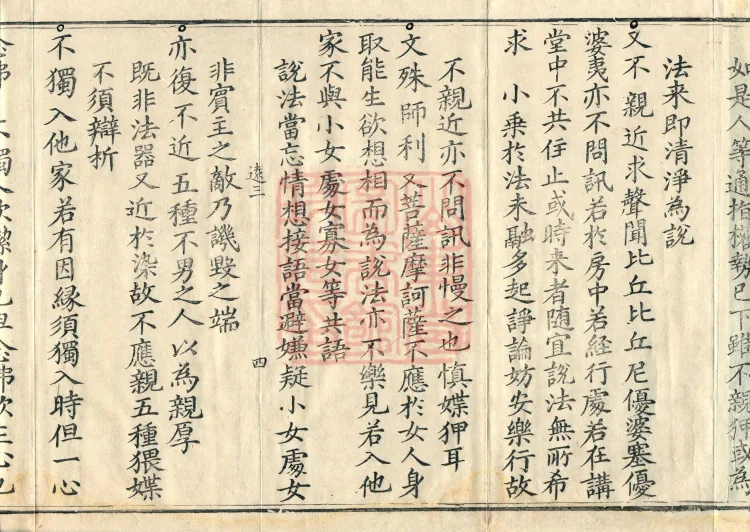 如是人等通指執已下雖不親狎或為
法来即清淨為說
又不親近求聲聞比丘比丘尼優婆塞優
婆夷亦不問訊若於房中若経行處若在講
堂中不共住止或時来者随宜說法無所希
求 小乗於法未融多起諍論妨安樂行故
不親近亦不問訊非慢之也慎媟狎耳
文殊師利又菩薩摩訶薩不應於女人身
取能生欲想相而為說法亦不樂見若入他
家不與小女處女寡女等共語
說法當忘情想接語當避嫌疑小女處女
遠三 四
非賓主之敵乃譏毀之端
亦復不近五種不男之人以為親厚
既非法器又近於染故不應親五種猥媟
不須辯析
不獨入他家若有因縁須獨入時但一心
念佛不獨入次潔身也但念佛次正心也